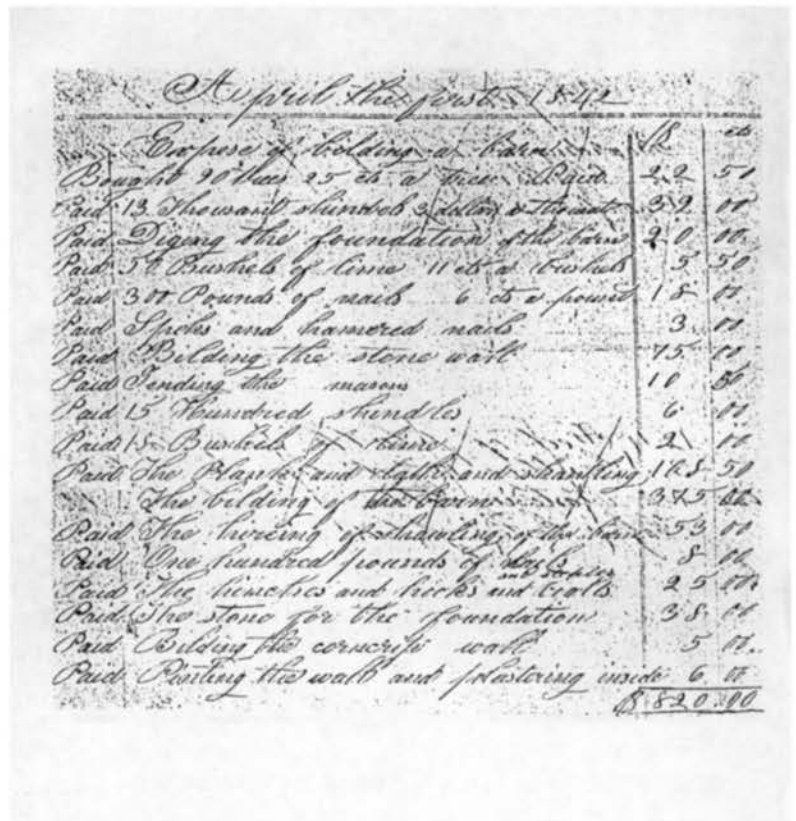 April the first 1842
Expense of bilding a barn $ cts
Bought 90 trees 25 cts a tree Paid 22 50
Paid 13 Thousand shindels 3 dollars a thousand 39 00
Paid Diging the foundation of the barn 20 00
Paid 50 Bushels of lime 11 cts a bushels 5 50
Paid 300 Pounds of nails 6 cts a pound 18 00
Paid Spikes and hamered nails 3 00
Paid Bilding the stone wall 75 00
Paid Tending the masons 10 50
Paid 15 Hundred shindles 6 00
Paid 15 Bushels of 2 00
Paid The Plank and and shantling 50
The bilding of the barn 375
Paid The of the barn 53 00
Paid One hundred pounds of 8 00
Paid The and hooks and and staples 25 00
Paid The stone for the foundation 38 00
Paid Bilding the corncrip wall 5 00
Paid the wall and plastering inside 6 00
$820.00